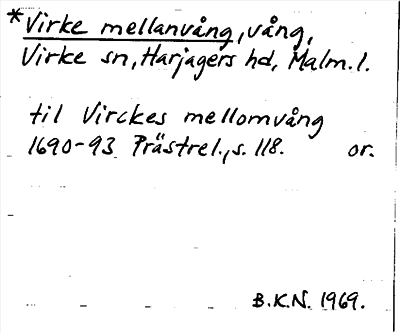 *Virke mellanvång, vång,
Virke sn, Harjagers hd, Malm. l.
til Virckes mellomvång
1690-93 Prästrel., s. 118. or.
B.K.N. 1969.